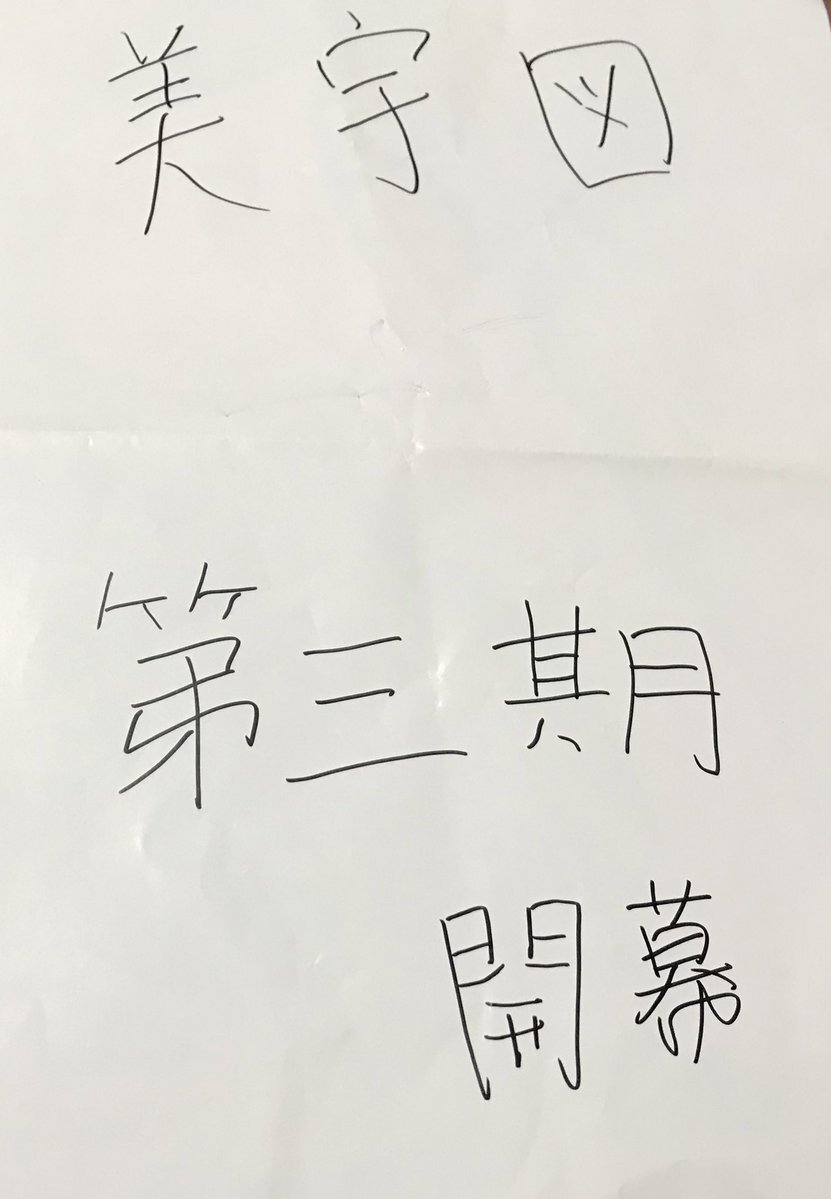 美宇図
第三期
開幕